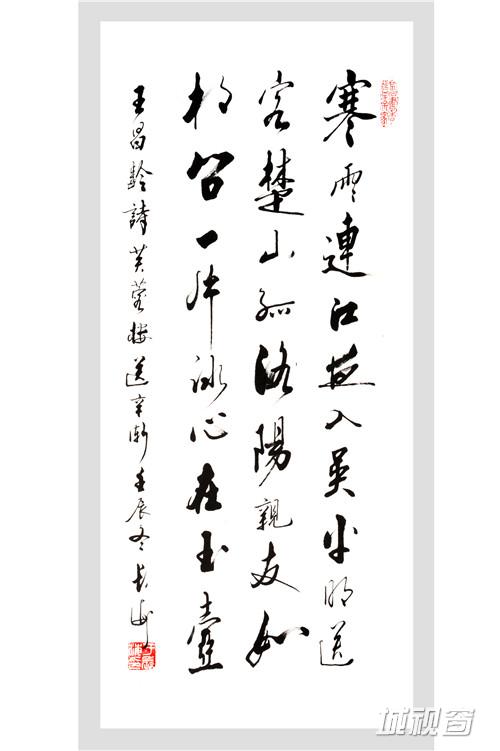 寒雨連江夜入吳平明送
客楚山孤洛陽親友如
相問一片冰心在玉壺
王昌齡詩芙蓉樓送辛漸壬辰冬長
城视窗